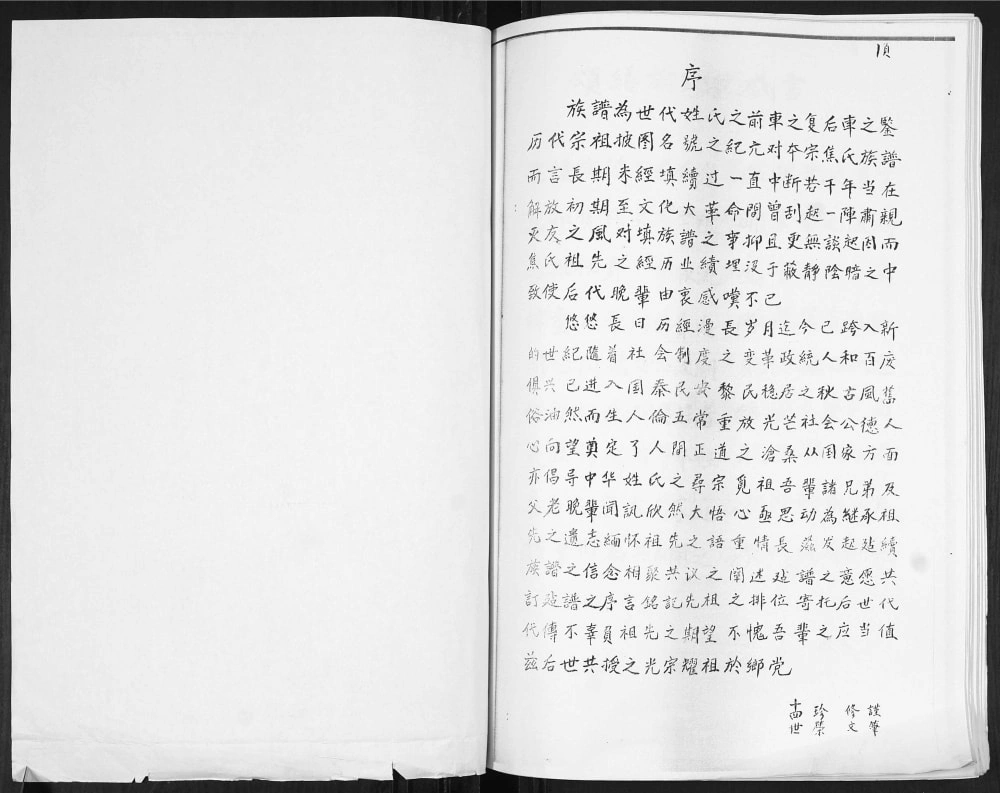 1頁
序
族譜為世代姓氏之前車之复后車之鑒
历代宗祖披图名號之紀元对夲宗焦氏族譜
而言長期未經填續过一直中断若干年当在
解放初期至文化大革命間曾刮起一陣肅親
灭友之風对填族譜之事抑且更無談起因而
焦氏祖先之經历业績埋沒于蔽静陰暗之中
致使后代晚輩由衷感嘆不已
悠悠長日历經漫長岁月迄今已跨入新
的世紀隨着社会制度之变革政統人和百废
俱兴已进入国泰民安黎民穏居之秋古風舊
俗油然而生人倫五常重放光芒社会公德人
心向望奠定了人間正道之滄桑从国家方面
亦倡导中华姓氏之尋宗覓祖吾輩諸兄弟及
父老晚輩闻訊欣然大悟心亟思动為継承祖
先之遺志緬怀祖先之語重情長兹发起延續
族譜之信念相聚共议之阐述延譜之意愿共
訂延譜之序言銘記先祖之排位寄托后世代
代傳不辜負祖先之期望不愧吾輩之应当值
兹后世共授之光宗耀祖於鄉党
十四世 珍荣 修文 謹筆